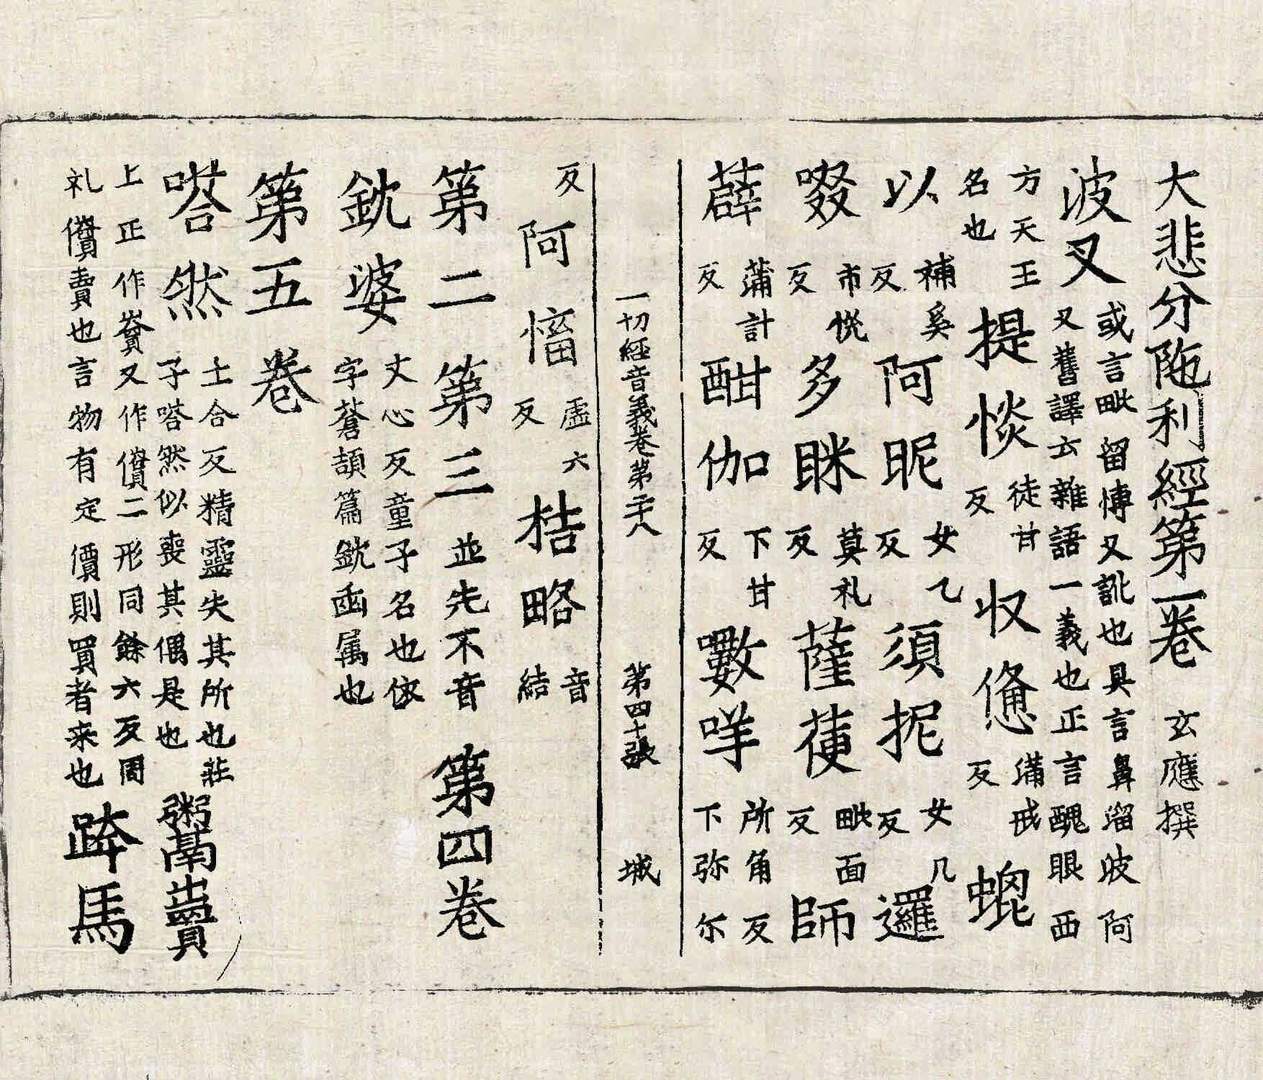 大悲分陁利經第一卷 玄應撰
波叉 或言毗留博叉訛也具言鼻溜波阿叉舊譯云雜語一義也正言醜眼西
方天王名也 提惔 徒甘反 収僃 蒲戒反 螕
以 補奚反 阿昵 女乙反 須抳 女几反 邏
啜 市悦反 多眯 莫礼反 薩 毗面反 師
薜 蒲計反 酣伽 下甘反 咩 所角反下弥尓
一切經音義卷第二十八 第四十張 城
反 阿慉 虚六反 桔略 音結
第二 第三 並先不音 第四卷
鈂婆 丈心反童子名也依字蒼頡篇鈂臿属也
第五卷
嗒然 土合反精靈失其所也莊子嗒然似喪其偶是也 鬻賣
上正作 又作儥二形同餘六反周礼儥賣也言物有定價則買者来也 馬